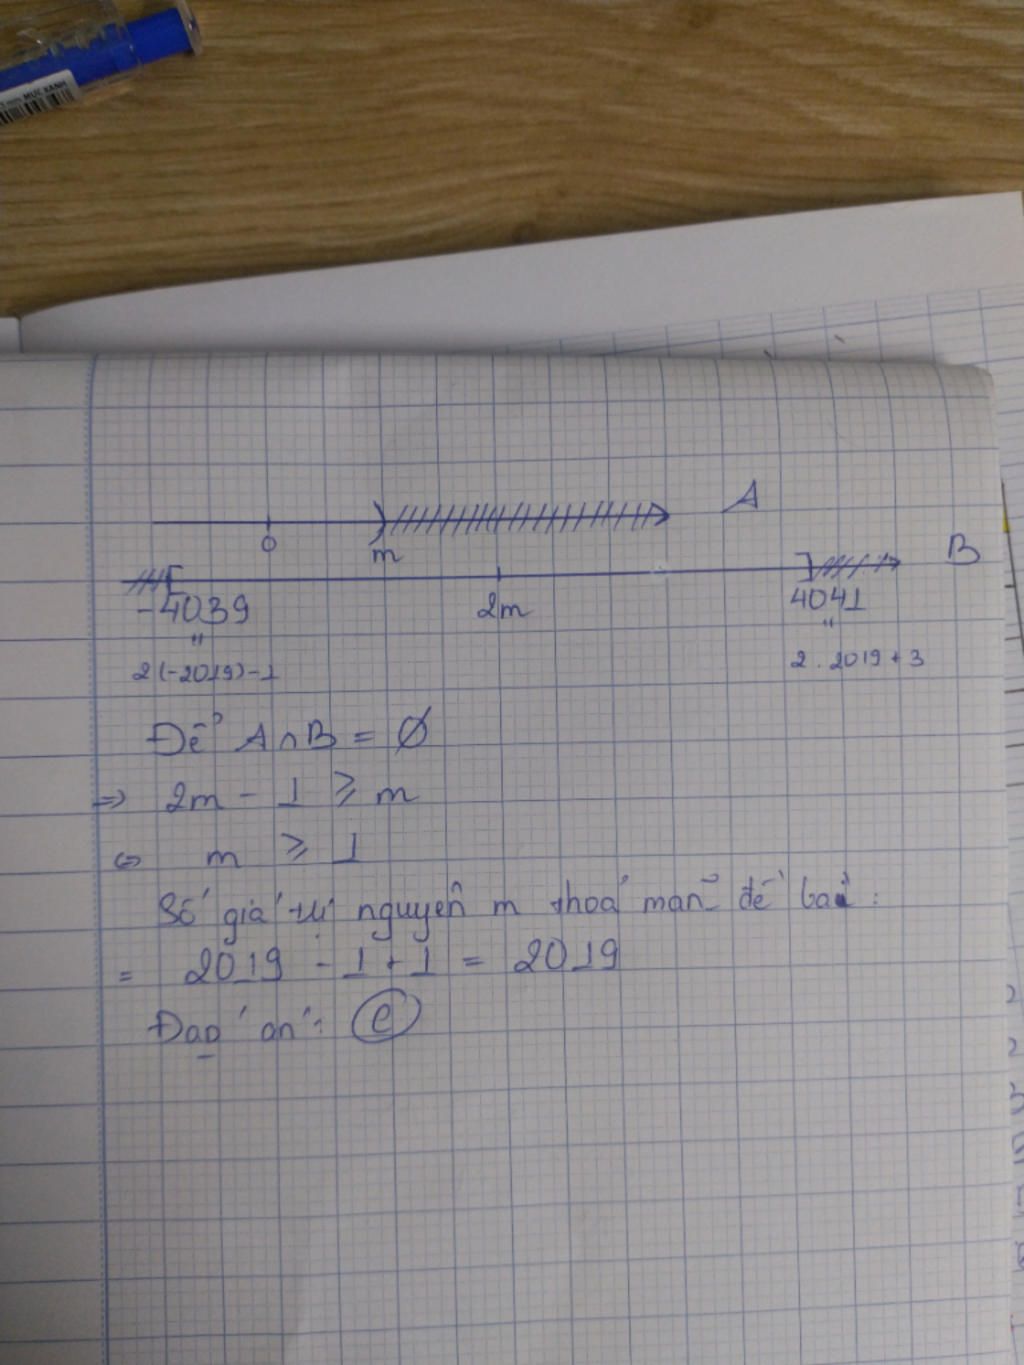 MỰC XANH
A
0
m
B
-4039
2m
4041
"
"
2(-2019)-1
2 . 2019 + 3
Để A ∩ B = ∅
=> 2m - 1 ⩾ m
<=> m ⩾ 1
Số giá trị nguyên m thoả mãn đề bài :
= 2019 - 1 + 1 = 2019
Đáp án : C